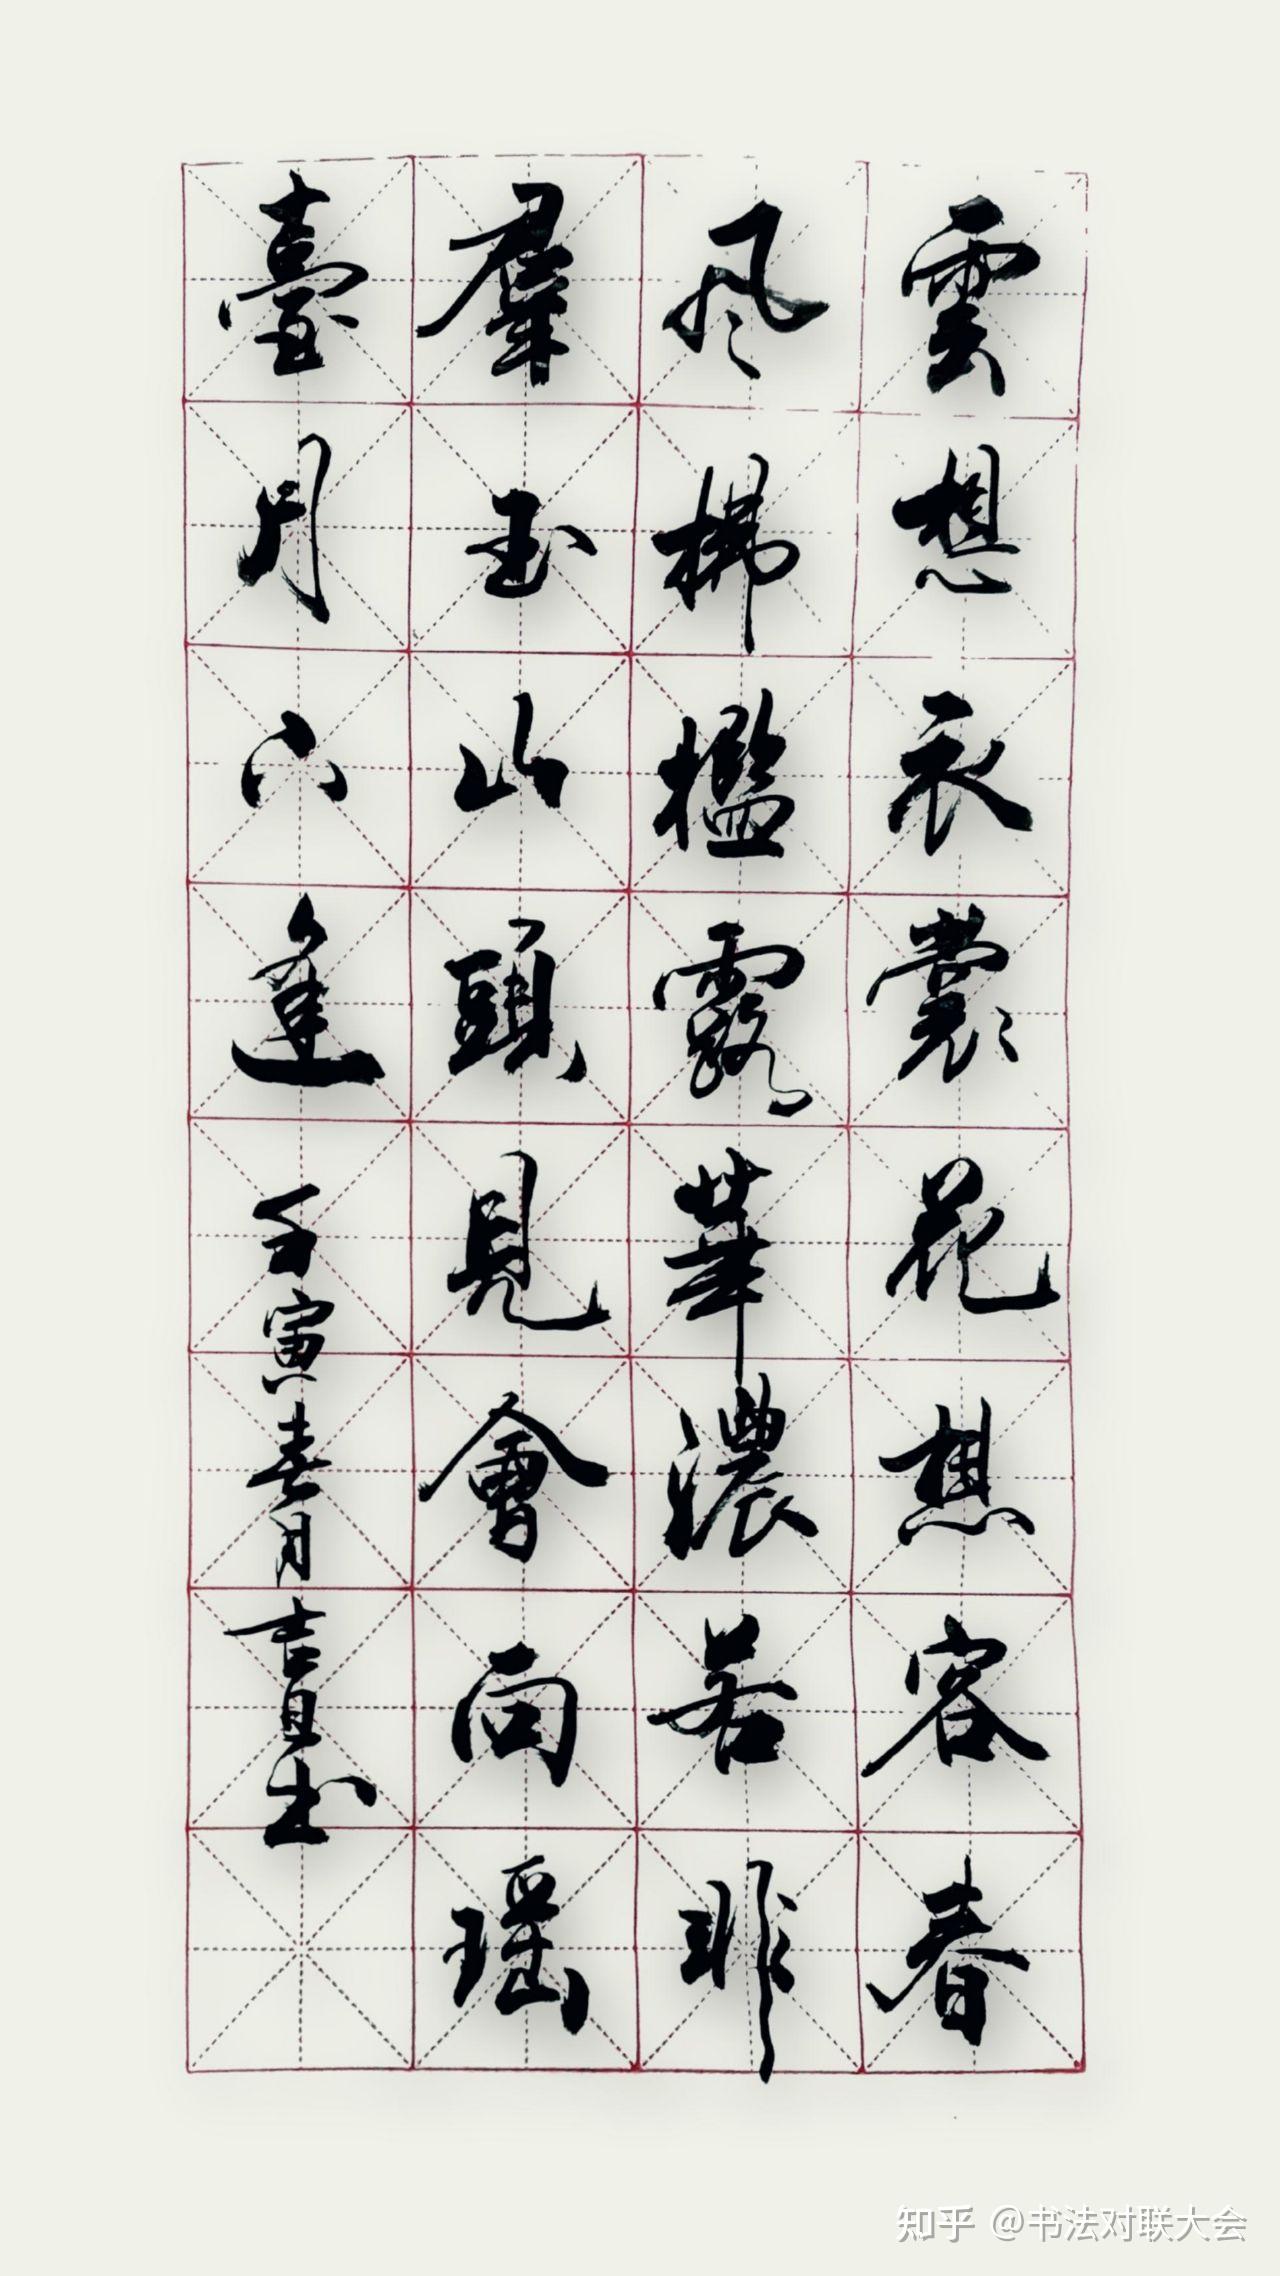 雲想衣裳花想容春
风拂檻露華濃若非
羣玉山頭見會向瑶
臺月下逢壬寅春月吉日书
知乎 @书法对联大会